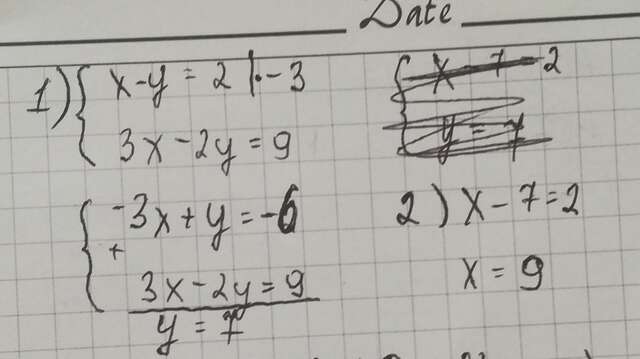 Date
1) { x - y = 2 | · - 3
3x - 2y = 9
{ -3x + y = -6
+
3x - 2y = 9
y = 7
2) x - 7 = 2
x = 9